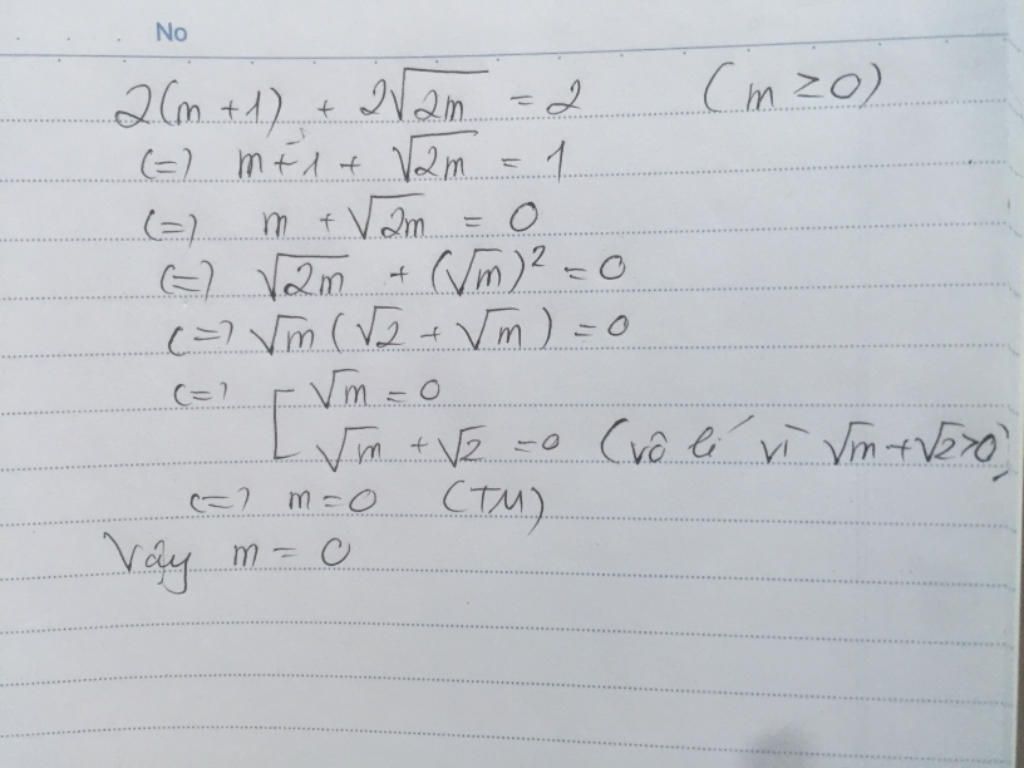 No
2(m+1) + 2√2m = 2 (m ≥ 0)
(=) m+1 + √2m = 1
(=) m + √2m = 0
(=) √2m + (√m)² = 0
(=) √m (√2 + √m) = 0
(=) [ √m = 0
√m + √2 = 0 (vô lí vì √m + √2 > 0)
(=) m = 0 (TM)
Vậy m = 0